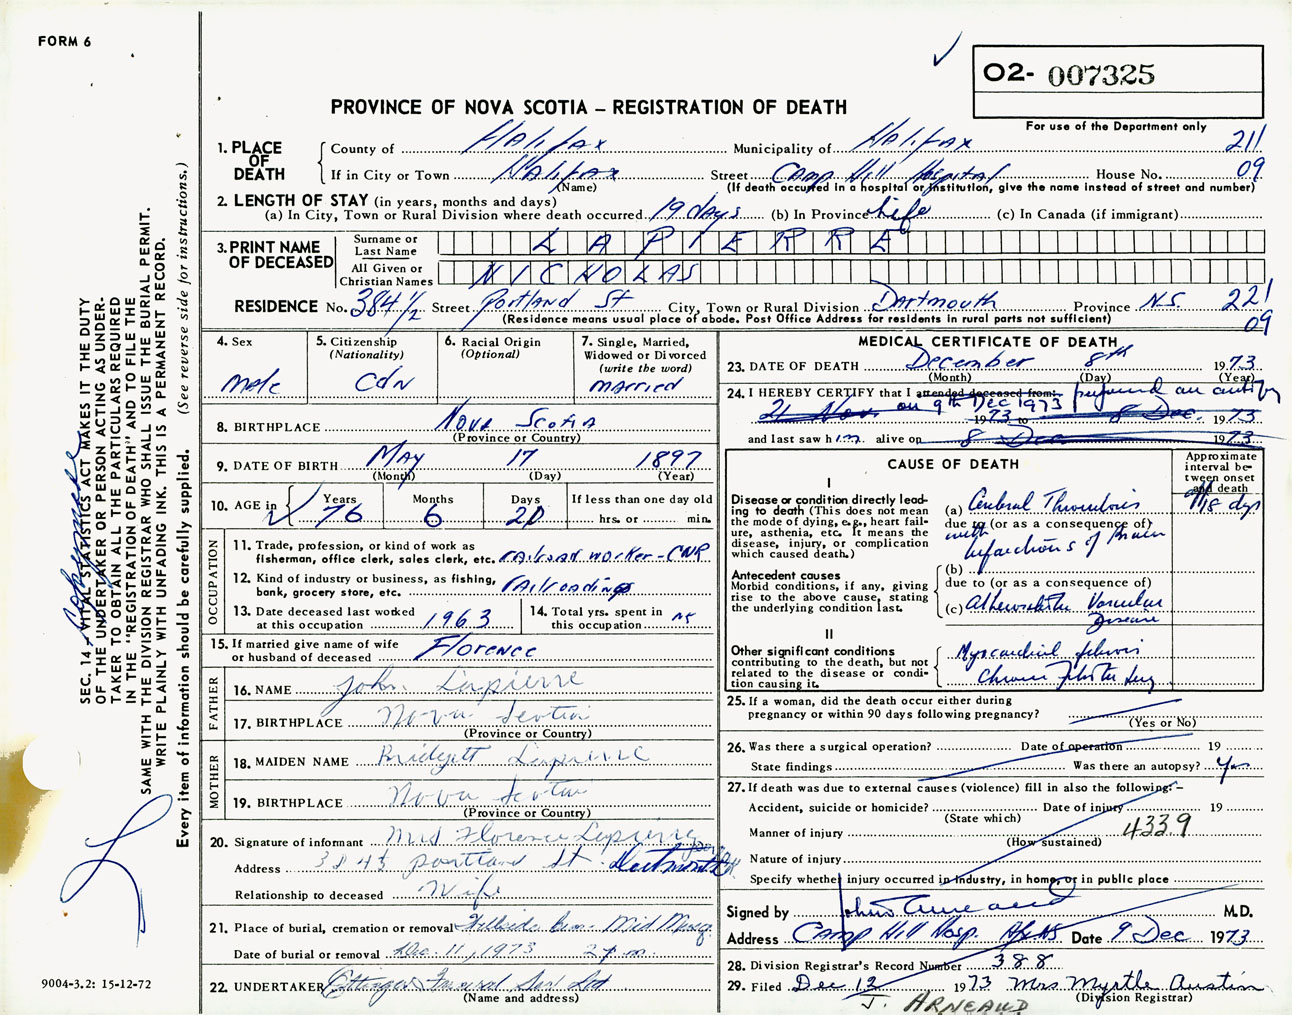 FORM 6
O2- 007325
PROVINCE OF NOVA SCOTIA – REGISTRATION OF DEATH
For use of the Department only
1. PLACE OF DEATH County of Halifax Municipality of Halifax 211
If in City or Town Halifax Street Camp Hill Hospital House No. 09
(Name) (If death occurred in a hospital or institution, give the name instead of street and number)
2. LENGTH OF STAY (in years, months and days)
(a) In City, Town or Rural Division where death occurred 19 days (b) In Province Life (c) In Canada (if immigrant)
3. PRINT NAME OF DECEASED Surname or Last Name LAPIERRE
All Given or Christian Names NICHOLAS
RESIDENCE No. 384 1/2 Street Portland St City, Town or Rural Division Dartmouth Province N.S. 221
(Residence means usual place of abode. Post Office Address for residents in rural parts not sufficient) 09
4. Sex Male
5. Citizenship (Nationality) Cdn
6. Racial Origin (Optional)
7. Single, Married, Widowed or Divorced (write the word) married
8. BIRTHPLACE Nova Scotia
(Province or Country)
9. DATE OF BIRTH May 17 1897
(Month) (Day) (Year)
10. AGE in Years 76 Months 6 Days 21 If less than one day old
hrs. or min.
OCCUPATION
11. Trade, profession, or kind of work as fisherman, office clerk, sales clerk, etc. railroad worker - CNR
12. Kind of industry or business, as fishing, bank, grocery store, etc. railroading
13. Date deceased last worked at this occupation 1963
14. Total yrs. spent in this occupation
15. If married give name of wife or husband of deceased Florence
FATHER
16. NAME John Lapierre
17. BIRTHPLACE Nova Scotia
(Province or Country)
MOTHER
18. MAIDEN NAME Bridgett Lapierre
19. BIRTHPLACE Nova Scotia
(Province or Country)
20. Signature of informant Mrs Florence Lapierre
Address 384½ portland St. Dartmouth
Relationship to deceased Wife
21. Place of burial, cremation or removal
Date of burial or removal Dec. 11, 1973 2 p.m.
22. UNDERTAKER Ettinger Funeral Ltd
(Name and address)
MEDICAL CERTIFICATE OF DEATH
23. DATE OF DEATH December 8th 1973
(Month) (Day) (Year)
24. I HEREBY CERTIFY that I attended deceased from: performed an autopsy
21 Nov on 9th Dec 1973 1973 to 8 Dec 1973
and last saw him alive on 8 Dec 1973
CAUSE OF DEATH
Approximate interval between onset and death
I
Disease or condition directly leading to death (This does not mean the mode of dying, e.g., heart failure, asthenia, etc. It means the disease, injury, or complication which caused death.)
(a) Cerebral Thrombosis 18 dys
due to (or as a consequence of)
with infarctions of Brain
Antecedent causes
Morbid conditions, if any, giving rise to the above cause, stating the underlying condition last.
(b)
due to (or as a consequence of)
(c) Vascular Disease
II
Other significant conditions contributing to the death, but not related to the disease or condition causing it.
Myocardial fibrosis
25. If a woman, did the death occur either during pregnancy or within 90 days following pregnancy?
(Yes or No)
26. Was there a surgical operation? Date of operation 19
State findings Was there an autopsy? Yes
27. If death was due to external causes (violence) fill in also the following:–
Accident, suicide or homicide? Date of injury 19
(State which)
Manner of injury 4339
(How sustained)
Nature of injury
Specify whether injury occurred in industry, in home, or in public place
Signed by M.D.
Address Camp Hill Hosp. Date 9 Dec 1973
28. Division Registrar's Record Number 388
29. Filed Dec 12 1973 Mrs. Myrtle Austin
(Division Registrar)
J. ARNEAUD
SEC. 14 – VITAL STATISTICS ACT MAKES IT THE DUTY
OF THE UNDERTAKER OR PERSON ACTING AS UNDER-
TAKER TO OBTAIN ALL THE PARTICULARS REQUIRED
IN THE "REGISTRATION OF DEATH" AND TO FILE THE
SAME WITH THE DIVISION REGISTRAR WHO SHALL ISSUE THE BURIAL PERMIT.
WRITE PLAINLY WITH UNFADING INK. THIS IS A PERMANENT RECORD.
Every item of information should be carefully supplied. (See reverse side for instructions.)
9004-3.2: 15-12-72